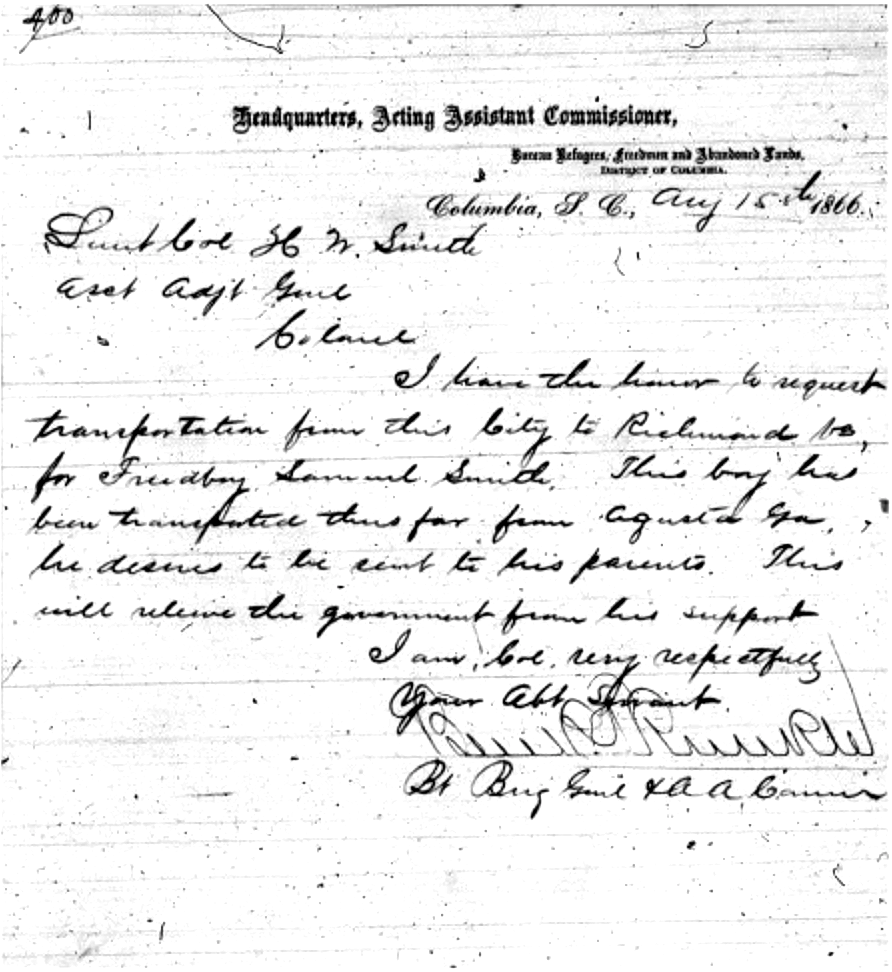 400
Headquarters, Acting Assistant Commissioner,
Bureau Refugees, Freedmen and Abandoned Lands,
DISTRICT OF COLUMBIA.
Columbia, S. C., Aug 15th 1866.
Lieut Col H W. Smith
Asst Adjt Genl
Colonel
I have the honor to request
transportation from this City to Richmond Va,
for Freedboy Samuel Smith. This boy has
been transported thus far from Agusta Ga,
he desires to be sent to his parents. This
will releive the government from his support
I am, Col, very respectfully
Your Obt Servant
Ben P Runkle
Bt Brig Genl & A A Commr